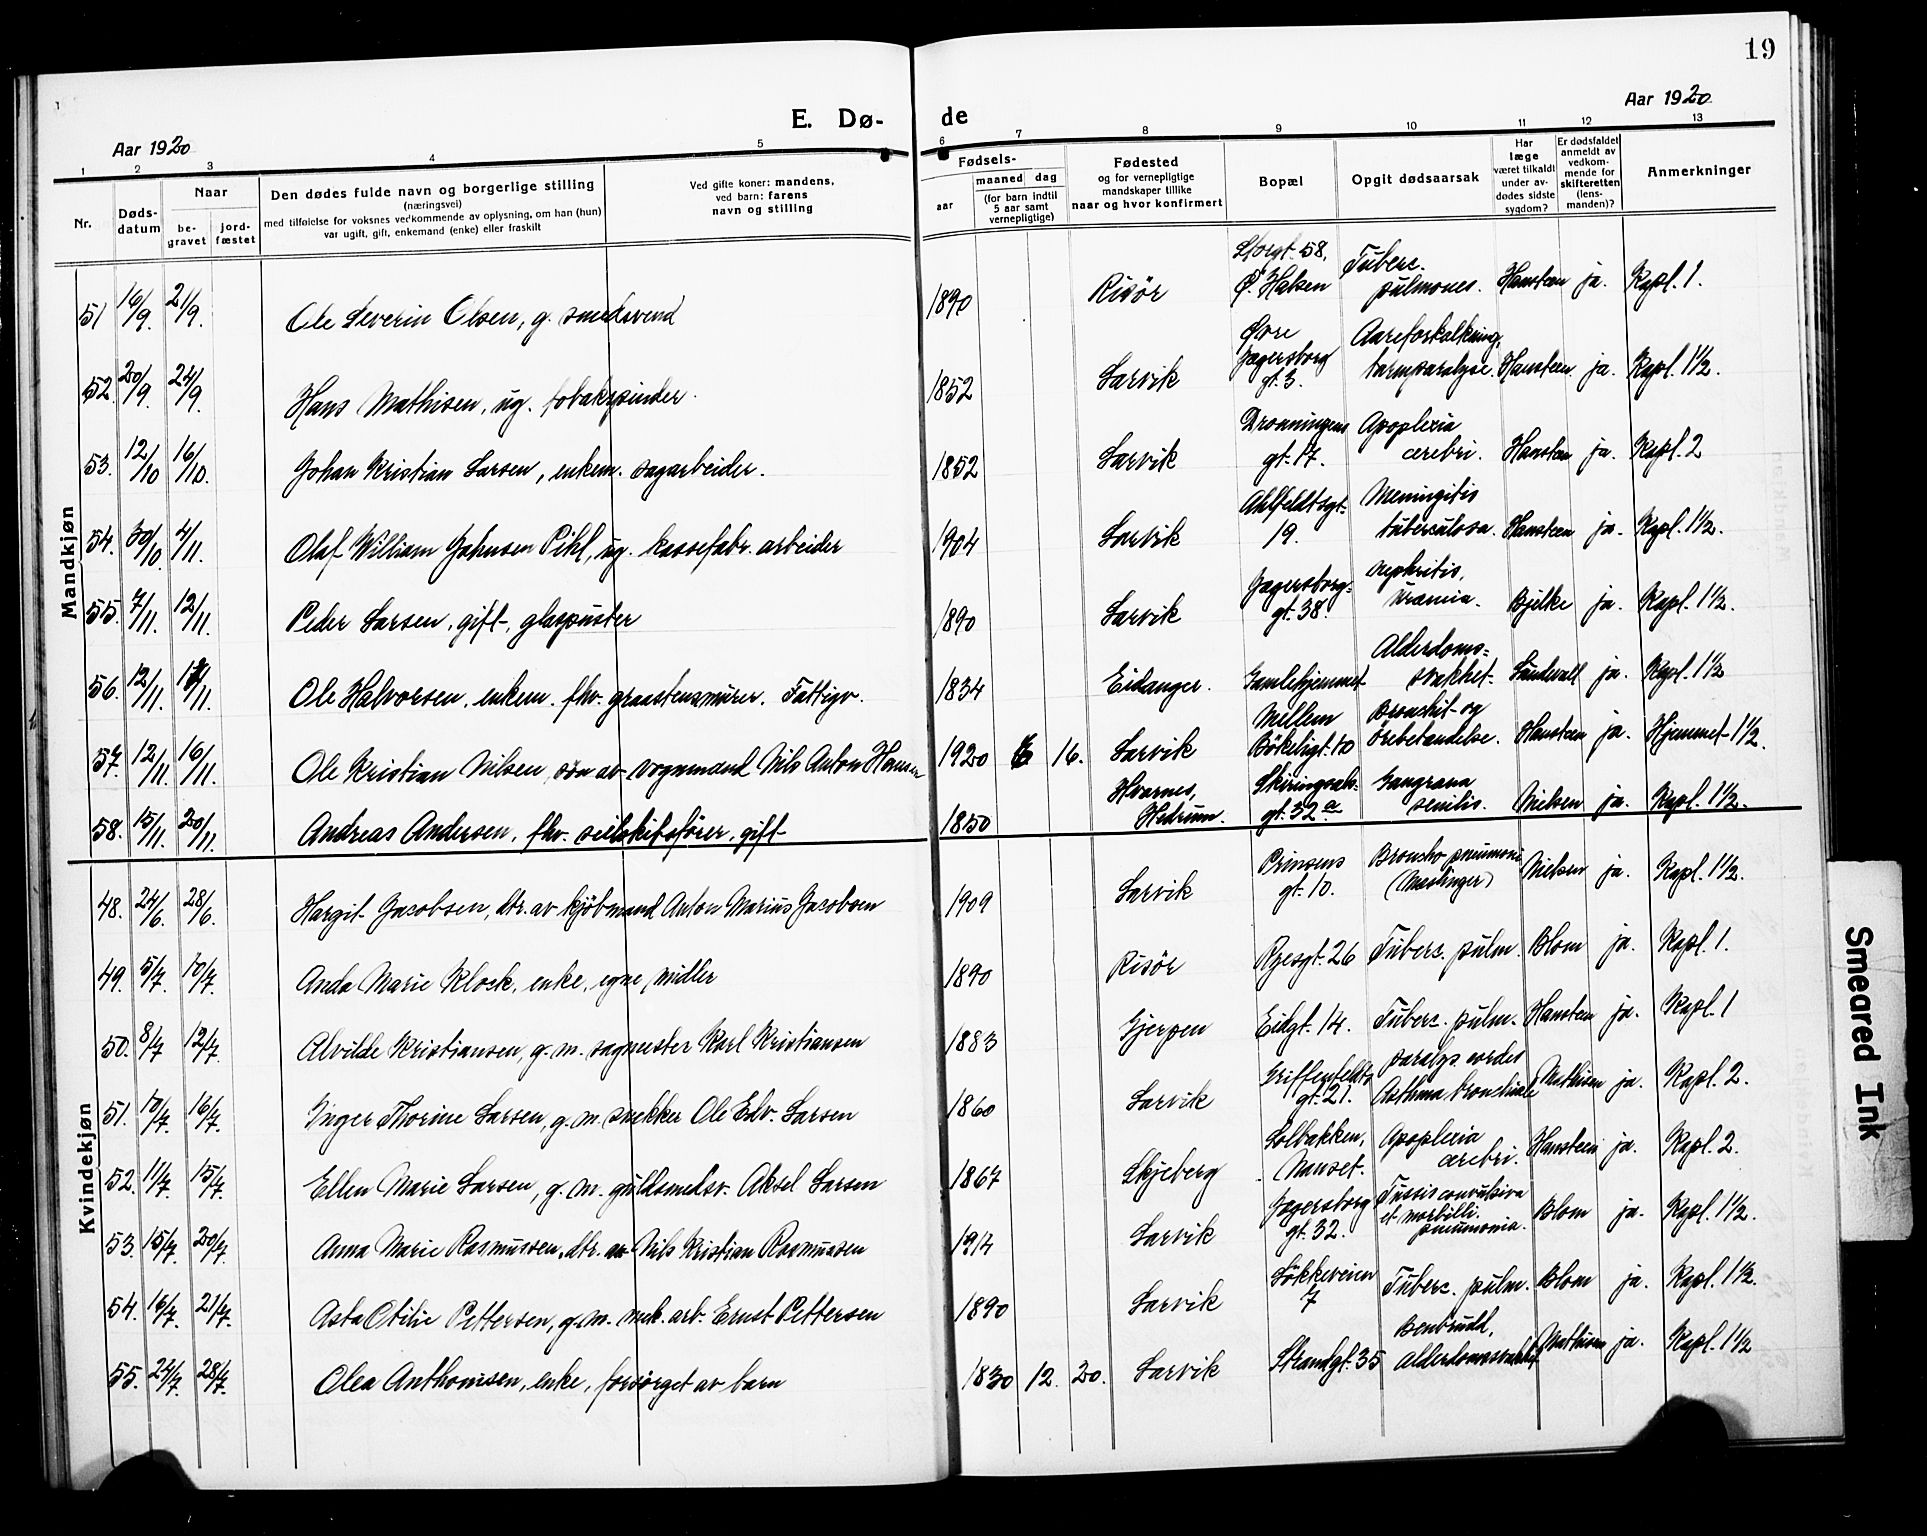 19
E. Dø- de
Aar 1920
Aar 1920
1 2 3 4 5 6 7 8 9 10 11 12 13
Nr.
Dødsdatum
Naar
begravet
jordfæstet
Den dødes fulde navn og borgerlige stilling
(næringsvei)
med tilføielse for voksnes vedkommende av oplysning, om han (hun)
var ugift, gift, enkemand (enke) eller fraskilt
Ved gifte koner: mandens,
ved barn: farens
navn og stilling
Fødsels-
aar
maaned dag
(for barn indtil
5 aar samt
vernepligtige)
Fødested
og for vernepligtige
mandskaper tillike
naar og hvor konfirmert
Bopæl
Opgit dødsaarsak
Har
læge
været tilkaldt
under avdødes sidste
sygdom?
Er dødsfaldet
anmeldt av
vedkommende for
skifteretten
(lensmanden)?
Anmerkninger
Mandkjøn
51 16/9. 21/9. Ole Severin Olsen, g. smedsvend 1890 Risör Storgt. 58, Ø. Halsen Tuberc. pulmones. Hansteen ja. Kapl. 1.
52 20/9. 24/9. Hans Mathisen, ug. tobakspinder. 1852 Larvik Øvre Jegersborg gt. 3. Aareforkalkning, tarmparalyse. Hansteen. ja. Kapl. 1½.
53. 12/10 16/10. Johan Kristian Larsen, enkem. sagarbeider. 1852 Larvik Dronningens gt. 17. Apoplexia cerebri. Hansteen ja. Kapl. 2
54. 30/10. 4/11. Olaf William Johnsen Pihl, ug. kassefabr. arbeider 1904 Larvik Ahlfeldtsgt. 19. Meningitis tuberculosa. Hansteen ja. Kapl. 1½.
55. 7/11. 12/11. Peder Larsen, gift, glaspuster 1890 Larvik Jegersborg= gt. 38. Nephritis, Uræmia. Bjelke ja. Kapl. 1½.
56. 12/11. /11. Ole Halvorsen, enkem. fhv. graastensmurer. Fattigv. 1834 Eidanger. Gamlehjemmet Alderdoms= svakhet. Sundwall ja. Kapl. 1½
57. 12/11. 16/11. Ole Kristian Nilsen, søn av vognmand Nils Anton Hansen 1920 6 16. Larvik Mellem Bökeligt. 10 Bronchit og örebetændelse. Hansteen ja. Hjemmet 1½.
58. 15/11. 20/11. Andreas Andersen, fhv. seilskibsfører, gift 1850 Hvarnes, Hedrum. Skiringssals= gt. 32 a Gangræna senilis. Nielsen ja. Kapl. 1½.
Kvindekjøn
48. 24/6. 28/6. Hargit Jacobsen, dtr. av kjöbmand Anton Marius Jacobsen 1909 Larvik Prinsens gt. 10. Broncho pneumoni (Meslinger) Nielsen ja. Kapl. 1½.
49. 5/7. 10/7. Anda Marie Klock, enke, egne midler 1890 Risör Ryesgt. 26 Tuberc. pulm. Blom ja. Kapl. 1.
50. 8/7 12/7. Alvilde Kristiansen, g. m. sagmester Karl Kristiansen 1883 Gjerpen Eidgt. 14. Tuberc. pulm. Hansteen ja. Kapl. 1
51. 10/7. 16/7. Inger Thorine Larsen, g. m. snekker Ole Edv. Larsen 1860 Larvik Griffenfeldts gt. 21. paralys. cordes Asthma bronchiale Mathisen ja. Kapl. 2.
52. 11/7. 15/7. Ellen Marie Larsen, g. m. guldsmedsv. Aksel Larsen 1867 Skjeberg Solbakken, Nanset. Apoplexia cerebri. Hansteen ja. Kapl. 2.
53. 15/7. 20/7. Anna Marie Rasmussen, dtr. av Nils Kristian Rasmussen 1914 Larvik Jegersborg gt. 32. Tussis convulsiva et morbilli. pneumonia. Blom ja. Kapl. 1½.
54. 16/7. 21/7. Asta Otilie Pettersen, g. m. mek. arb. Ernst Pettersen 1890 Larvik Løkkeveien 7 Tuberc. pulm. Blom ja. Kapl. 1½.
55. 24/7. 28/7. Olea Anthonisen, enke, forsørget av barn 1830 12. 20. Larvik Strandgt. 35 Benbrudd, Alderdomssvakhet Mathisen ja. Kapl. 1½
Smeared Ink